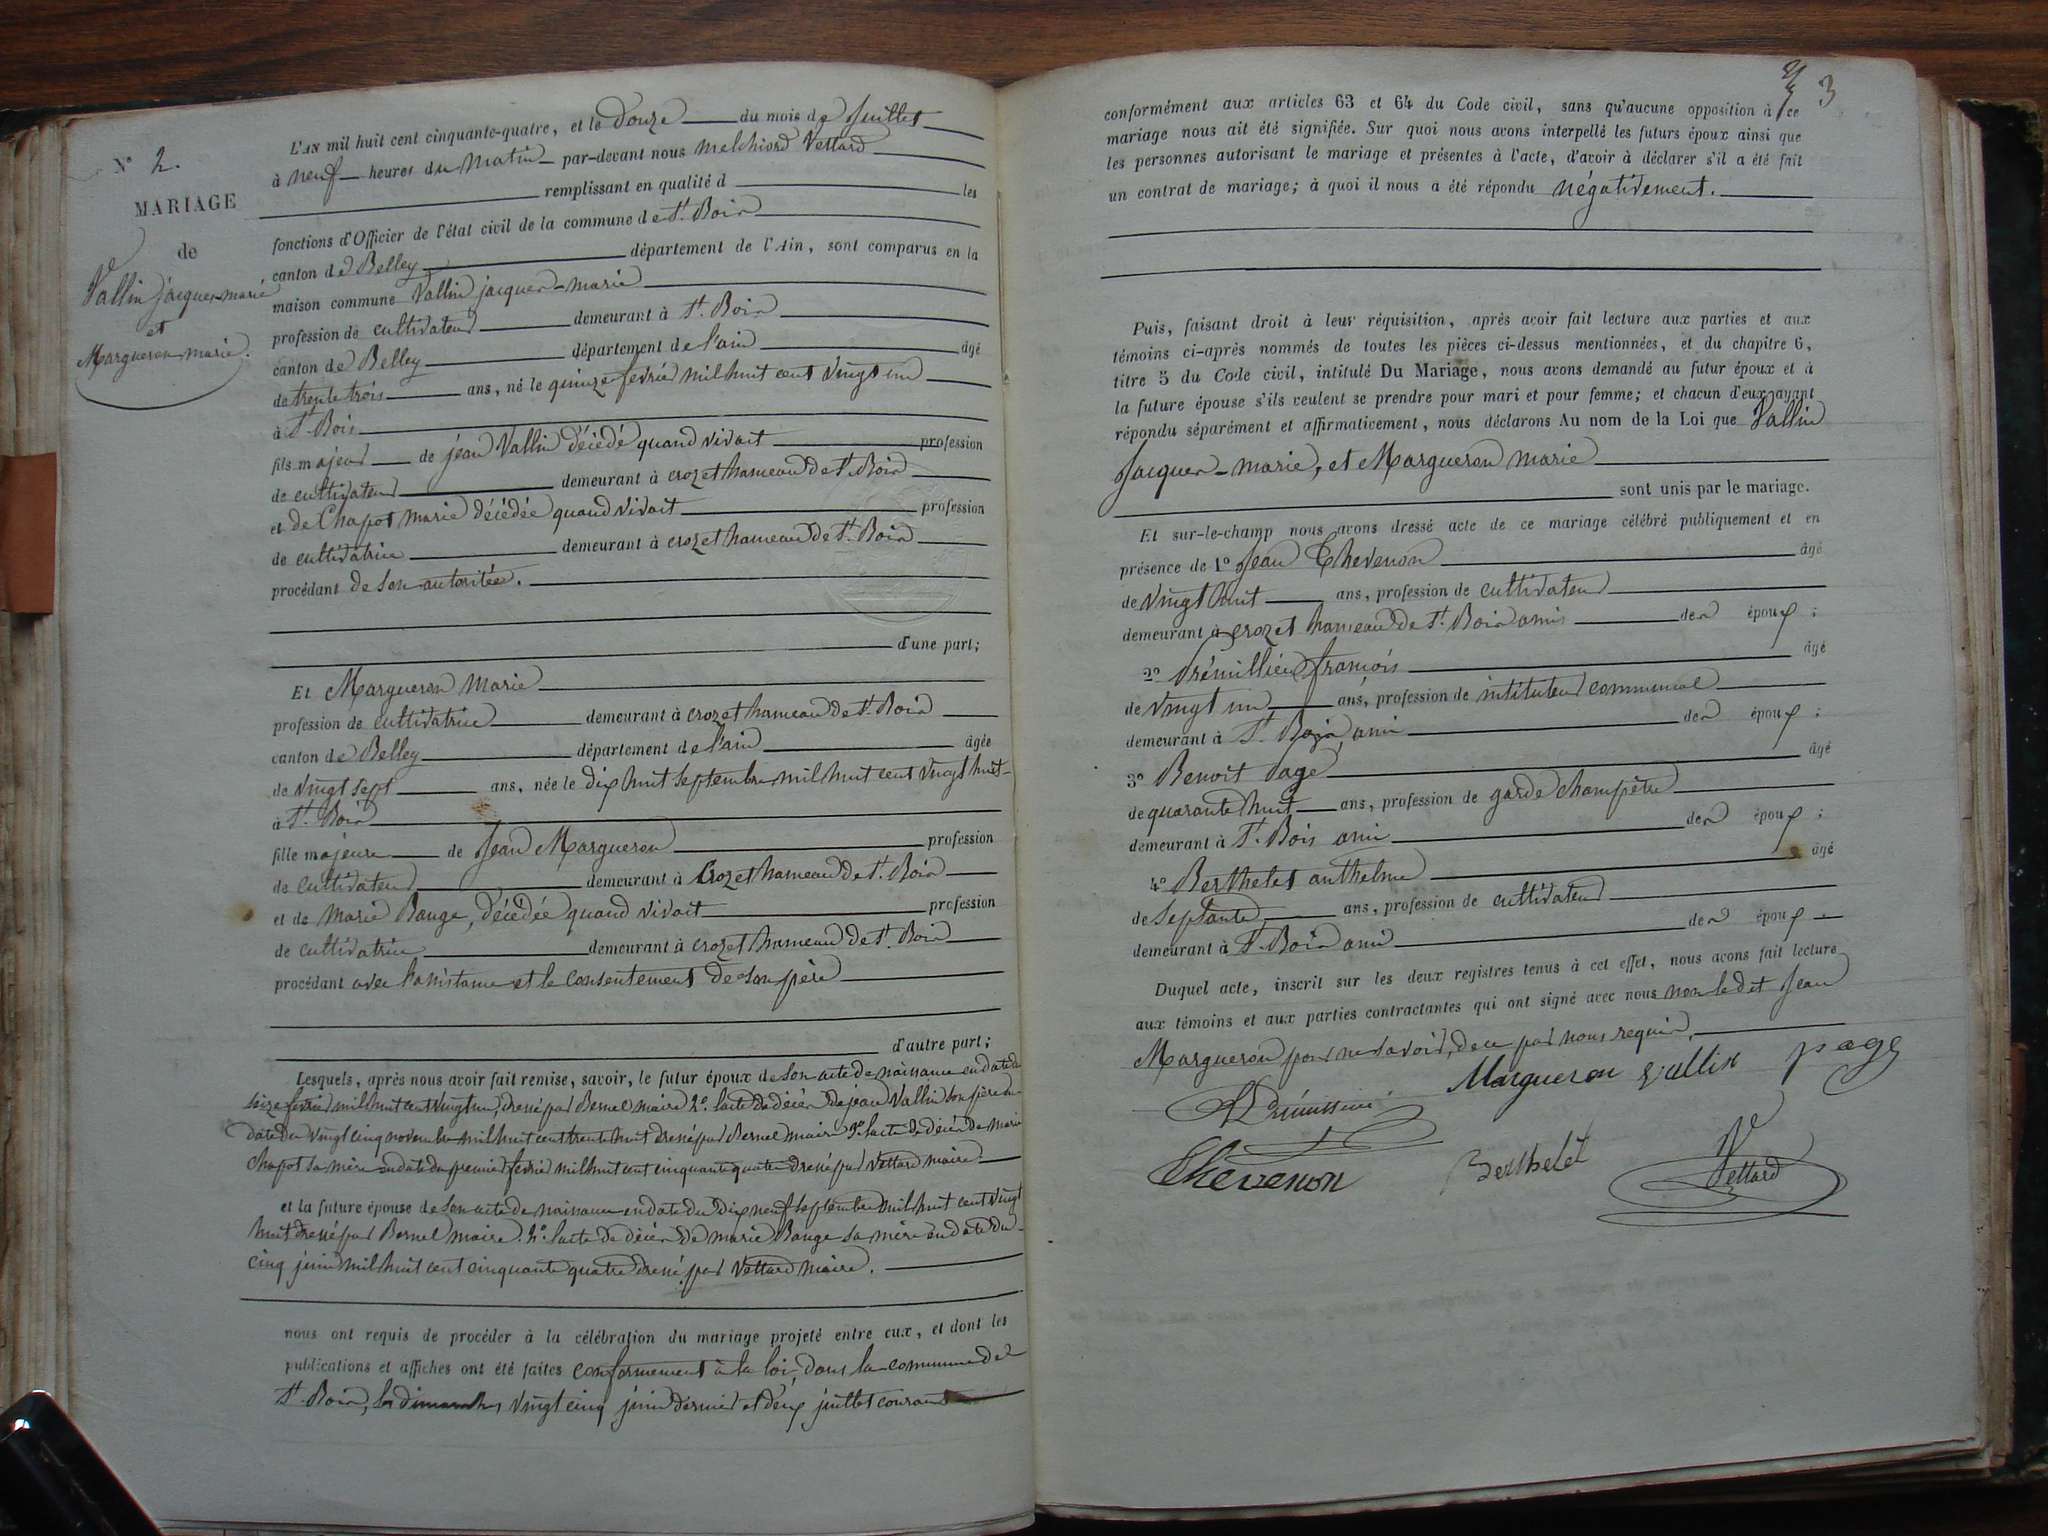 N° 2.
MARIAGE
de
Vallin jacques-marie
et
Margueron marie.
L'AN mil huit cent cinquante-quatre, et le douze du mois de Juillet
à neuf heures du matin par-devant nous melchiord Vettard
remplissant en qualité d les
fonctions d'Officier de l'état civil de la commune de St. Bois
canton de Belley département de l'Ain, sont comparus en la
maison commune Vallin jacques-marie
profession de cultivateur demeurant à St. Bois
canton de Belley département de l'ain âgé
de trente trois ans, né le quinze fevrié mil huit cent vingt un
à St. Bois
fils majeur de jean Vallin décédé quand vivait profession
de cultivateur demeurant à crozet hameau de St. Bois
et de Chapot marie décédée quand vivait profession
de cultivatrice demeurant à crozet hameau de St. Bois
procédant de son autoritée.
d'une part;
Et Margueron Marie
profession de cultivatrice demeurant à crozet hameau de St. Bois
canton de Belley département de l'ain âgée
de vingt sept ans, née le dix huit septembre mil huit cent vingt huit
à St. Bois
fille majeure de Jean Margueron profession
de cultivateur demeurant à Crozet hameau de St. Bois
et de Marie Bauge, décédée quand vivait profession
de cultivatrice demeurant à crozet hameau de St. Bois
procédant avec l'assistance et le consentement de son père
d'autre part;
Lesquels, après nous avoir fait remise, savoir, le futur époux de son acte de naissance en date du
seize fevrié mil huit cent vingt un, dressé par Bernel maire 2°. l'acte de décès de jean Vallin son père en
date du vingt cinq novembre mil huit cent trente huit dressé par Bernel maire 3°. l'acte de décès de marie
chapot sa mère en date du premier fevrié mil huit cent cinquante quatre dressé par Vettard maire.
et la future épouse de son acte de naissance en date du dix neuf septembre mil huit cent vingt
huit dressé par Bernel maire. 2°. l'acte de décès de marie Bauge sa mère en date du
cinq juin mil huit cent cinquante quatre dressé par Vettard maire.
nous ont requis de procéder à la célébration du mariage projeté entre eux, et dont les
publications et affiches ont été faites conformement à la loi, dans la commune de
St. Bois, les dimanches vingt cinq juin dernier et deux juillet courant
3
conformément aux articles 63 et 64 du Code civil, sans qu'aucune opposition à ce
mariage nous ait été signifiée. Sur quoi nous avons interpellé les futurs époux ainsi que
les personnes autorisant le mariage et présentes à l'acte, d'avoir à déclarer s'il a été fait
un contrat de mariage; à quoi il nous a été répondu négativement.
Puis, faisant droit à leur réquisition, après avoir fait lecture aux parties et aux
témoins ci-après nommés de toutes les pièces ci-dessus mentionnées, et du chapitre 6,
titre 5 du Code civil, intitulé Du Mariage, nous avons demandé au futur époux et à
la future épouse s'ils veulent se prendre pour mari et pour femme; et chacun d'eux ayant
répondu séparément et affirmativement, nous déclarons Au nom de la Loi que Vallin
Jacques-marie, et Margueron marie
sont unis par le mariage.
Et sur-le-champ nous avons dressé acte de ce mariage célébré publiquement et en
présence de 1° Jean Chevenon âgé
de vingt huit ans, profession de cultivateur
demeurant à crozet hameau de St. Bois amis des époux;
2° Prémillieu françois âgé
de vingt un ans, profession de intituteur communal
demeurant à St. Bois, ami des époux;
3° Benoit Page âgé
de quarante huit ans, profession de garde champêtre
demeurant à St. Bois ami des époux;
4° Berthelet anthelme âgé
de septante ans, profession de cultivateur
demeurant à St. Bois ami des époux
Duquel acte, inscrit sur les deux registres tenus à cet effet, nous avons fait lecture
aux témoins et aux parties contractantes qui ont signé avec nous non ledit Jean
Margueron pour ne savoir, de ce par nous requis.
Margueron vallin page
Chevenon Berthelet Vettard